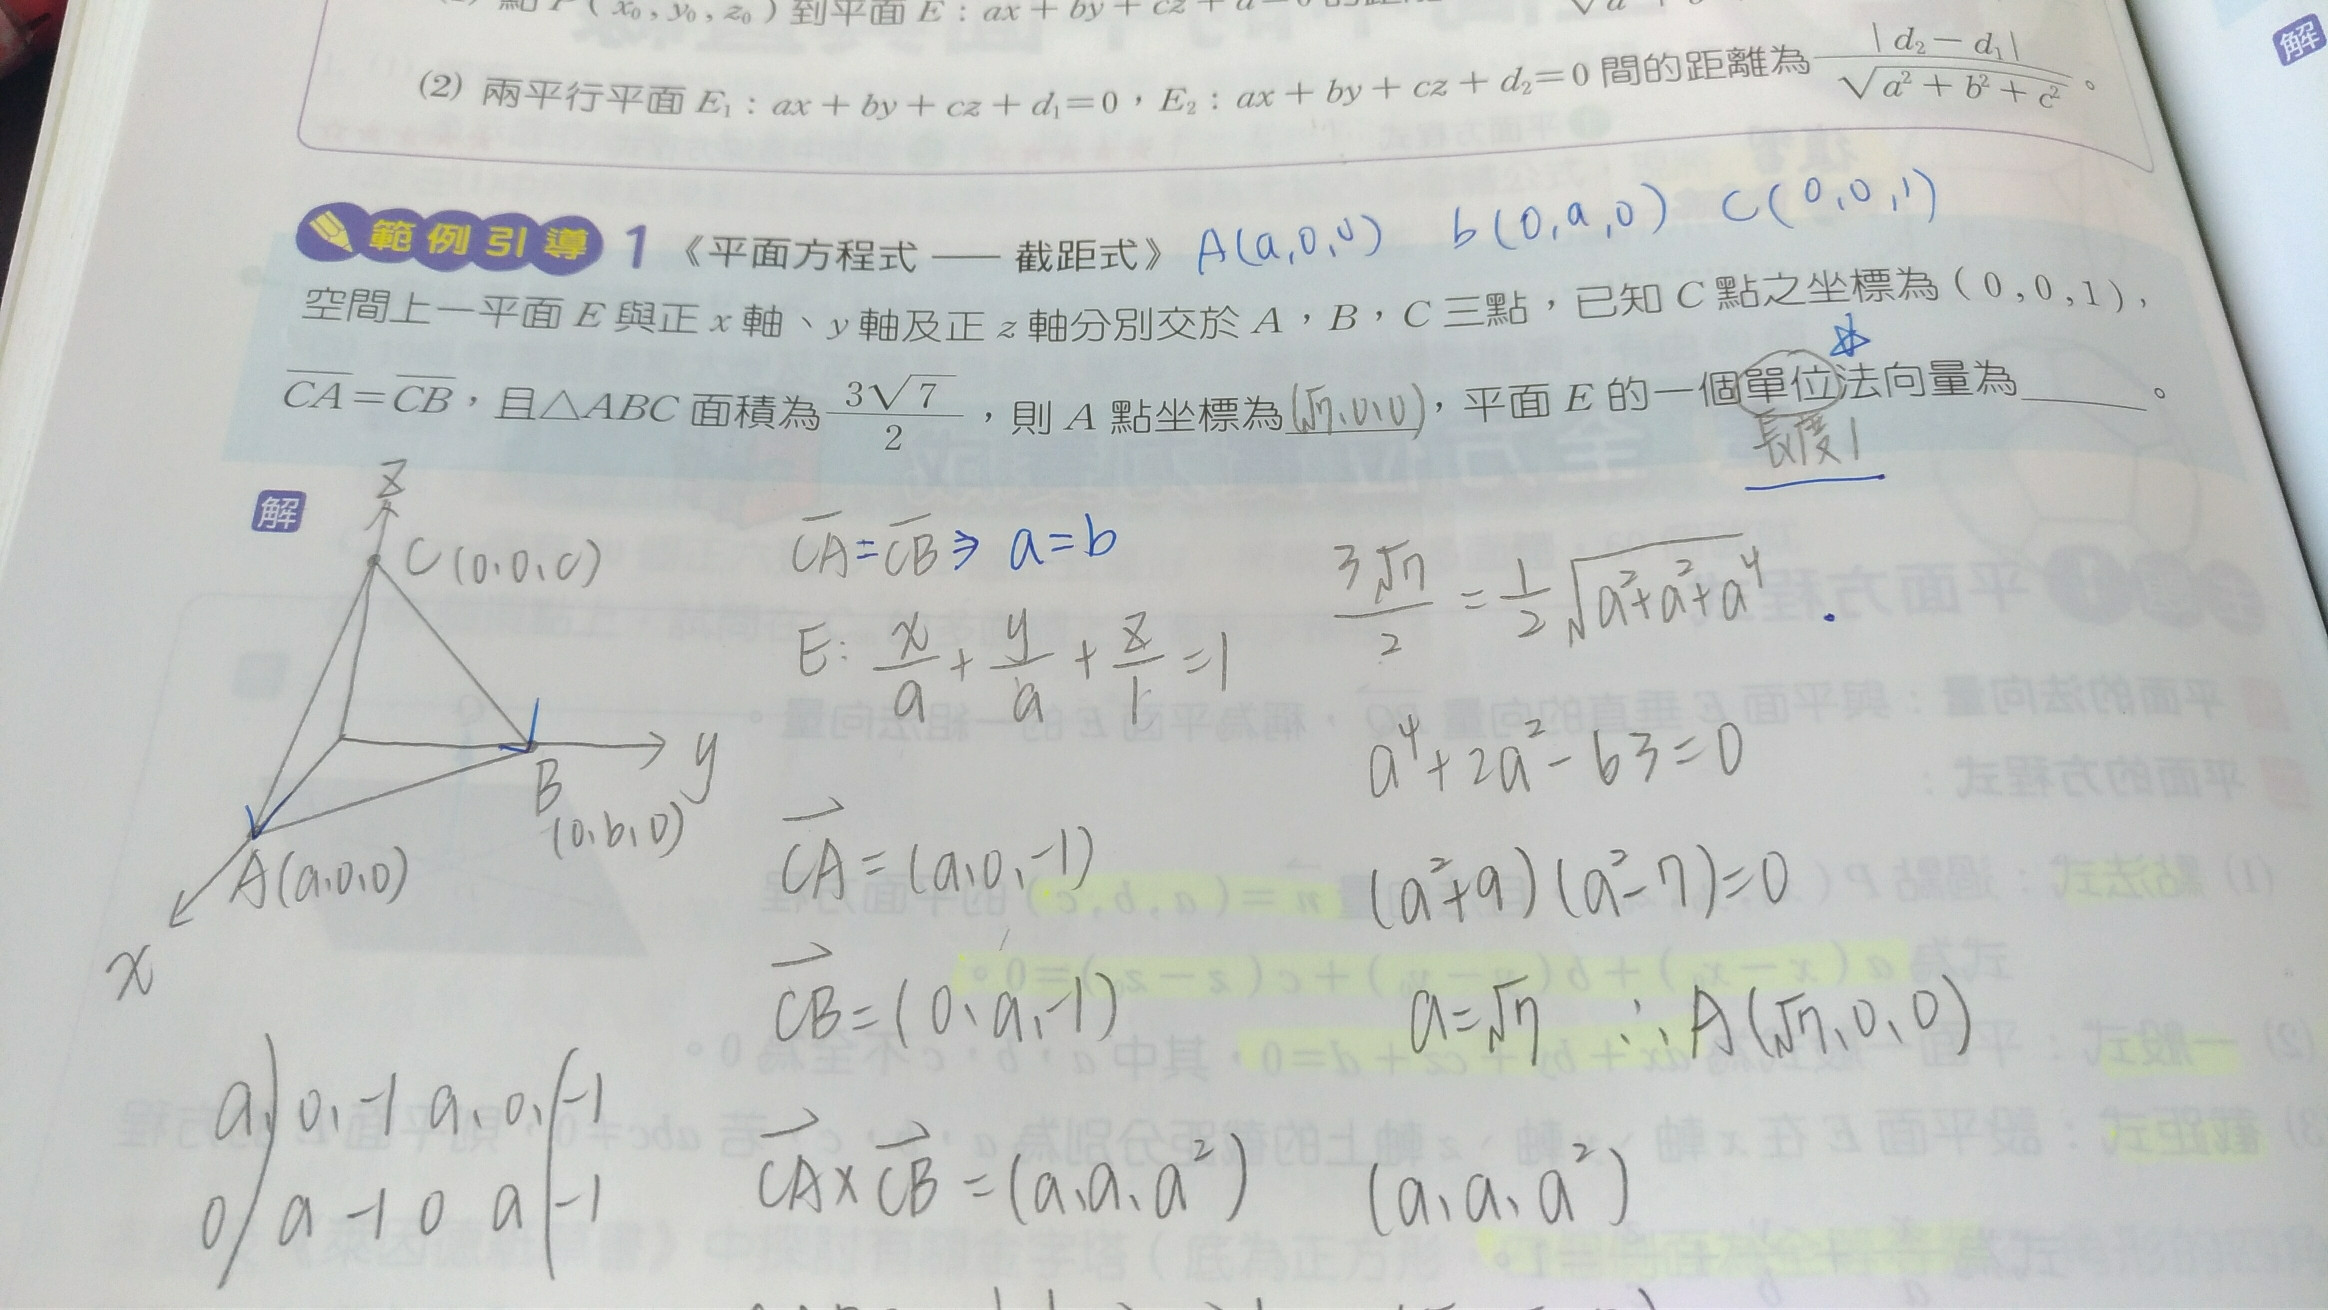 點 P ( x₀ , y₀ , z₀ ) 到平面 E : ax + by + cz + d = 0
(2) 兩平行平面 E₁ : ax + by + cz + d₁ = 0 , E₂ : ax + by + cz + d₂ = 0 間的距離為 | d₂ − d₁ | / √(a² + b² + c²) 。
範例引導 1 《平面方程式 —— 截距式》 A(a,0,0) b(0,a,0) C(0,0,1)
空間上一平面 E 與正 x 軸、y 軸及正 z 軸分別交於 A , B , C 三點,已知 C 點之坐標為 ( 0 , 0 , 1 ) ,
CA = CB,且△ABC 面積為 3√7 / 2 ,則 A 點坐標為 (√7,0,0) ,平面 E 的一個單位法向量為______。
長度1
解
解
z
C(0,0,c)
B
(0,b,0)
y
A(a,0,0)
x
a, 0, -1 a, 0, -1
0 a -1 0 a -1
CA = CB ⇒ a = b
E: x/a + y/a + z/1 = 1
CA = (a,0,-1)
CB = (0,a,-1)
CA × CB = (a,a,a²)
3√7 / 2 = 1/2 √(a²+a²+a⁴)
a⁴+2a²-63=0
(a²+9)(a²-7)=0
a=√7 ∴ A(√7,0,0)
(a,a,a²)